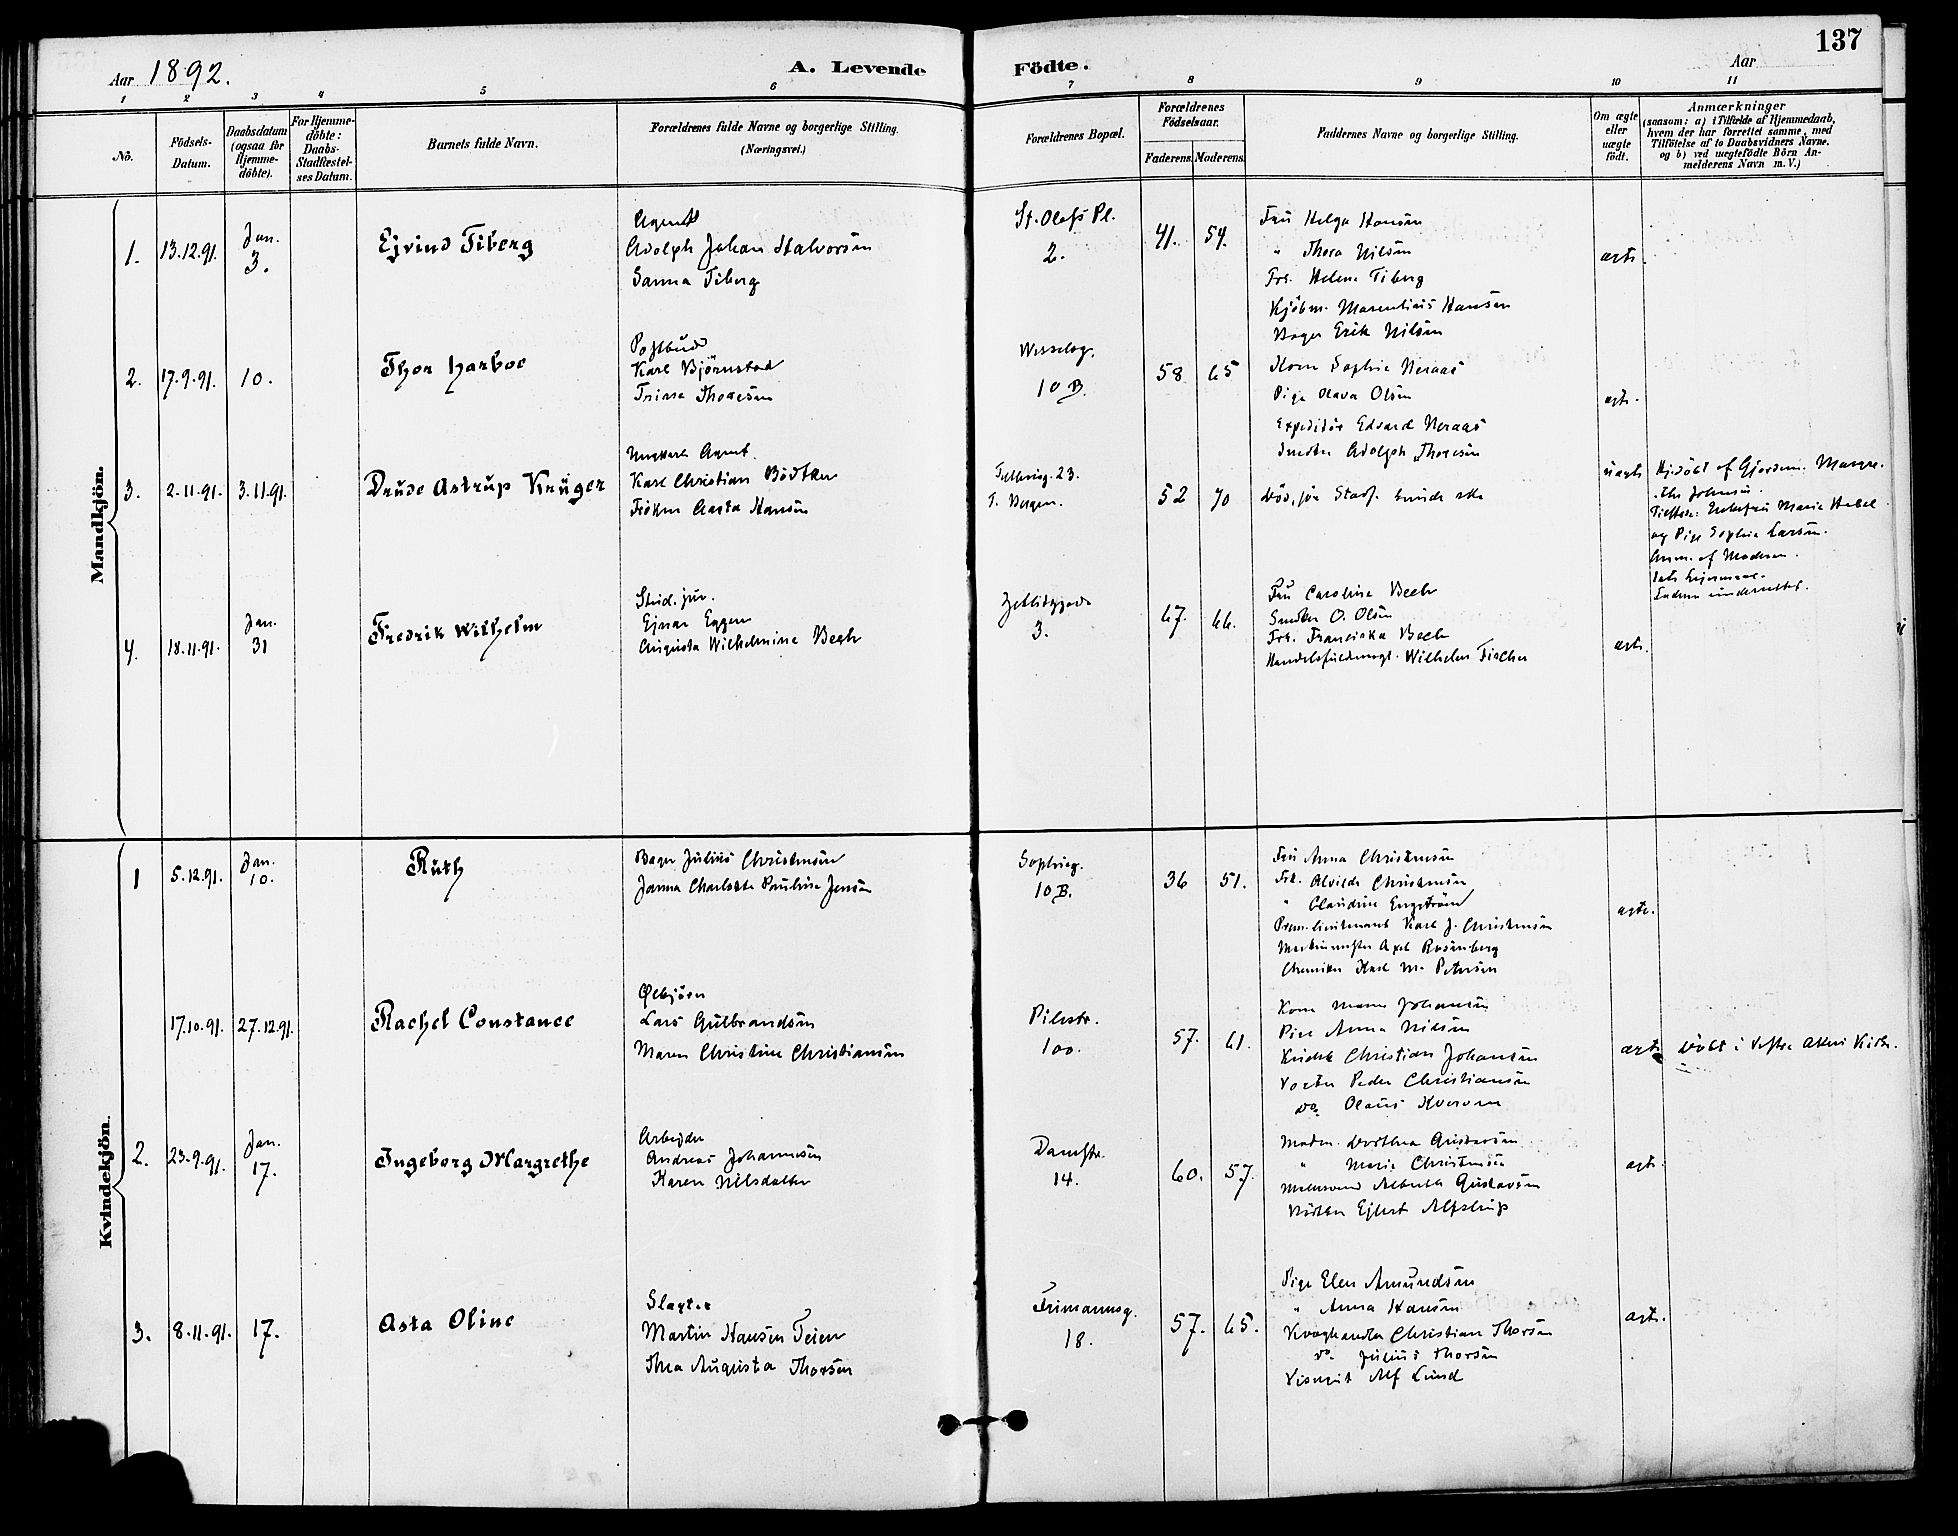 137
Aar 1892.
A. Levende Födte.
Aar
1 2 3 4 5 6 7 8 9 10 11
No.
Födsels-Datum.
Daabsdatum (ogsaa for Hjemme-döbte).
For Hjemme-döbte: Daabs-Stadfæstel-ses Datum.
Barnets fulde Navn.
Forældrenes fulde Navne og borgerlige Stilling.
(Næringsvei.)
Forældrenes Bopæl.
Forældrenes Födselsaar.
Faderens. Moderens.
Faddernes Navne og borgerlige Stilling.
Om ægte eller uægte födt.
Anmærkninger
(saasom: a) i Tilfælde af Hjemmedaab,
hvem der har forrettet samme, med
Tilföielse af to Daabsvidners Navne.
og b) ved uægtefödte Börn An-
melderens Navn m. V.)
Mandkjön.
1. 13.12.91. Jan. 3. Ejvind Tiberg
Agent
Adolph Johan Halvorsen
Sanna Tiberg
St. Olafs Pl.
2.
41. 54.
Fru Helga Hansen
" Thora Nilsen
Frk. Helene Tiberg
Kjöbm. Marentius Hansen
Bager Erik Nilsen
ægte.
2. 17.9.91. 10. Thor Harboe
Postbud
Karl Björnstad
Trine Thoresen
Wesselsg.
10 B.
58 65
Kone Sophie Neraas
Pige Olava Olsen
Expeditör Edvard Neraas
Smed Adolph Thoresen
ægte.
3. 2.11.91. 3.11.91. Drude Astrup Krüger
Ungkarl Agent.
Karl Christian Bödtker
Fröken Aasta Hansen
23.
Bergen.
52 70
Död, för Stadf.
uægte
Hjdöbt af Gjordem.
Johnsen.
Marie Hebel
og Pige Sophie Larsen.
Anm. af Moderen.
4. 18.11.91. Jan. 31 Fredrik Wilhelm
Stud. jur.
Ejnar Eggen
Augusta Wilhelmine Bech
3.
67. 66.
Fru Caroline Bech
Snedker O. Olsen
Frk. Franciska Bech
Handelsfuldmægt. Wilhelm Fischer
ægte.
Kvindekjön.
1 5.12.91. Jan. 10. Ruth
Bager Julius Christensen
Janna Charlotte Pauline Jensen
Sophieg.
10 B.
36 51.
Fru Anna Christensen
Frk. Alvilde Christensen
" Claudine Engström
Prem.lieutenant Karl J. Christensen
Axel Rosenberg
Chemiker Karl M. Petersen
ægte.
17.10.91. 27.12.91. Rachel Constance
Ölkjörer
Lars Gulbrandsen
Maren Christine Christiansen
Pilestr.
100.
57. 61.
Kone Maren Johansen
Pige Anna Nilsen
Christian Johansen
Peder Christiansen
do. Olaus
ægte
Döbt i Vestre Akers Kirke.
2. 23.9.91. Jan. 17. Ingeborg Margrethe
Arbejder
Andreas Johannesen
Karen Nilsdatter
Damstr.
14.
60. 57.
Madm. Dorthea Gustavsen
" Marie Christensen
Alberth Gustavsen
Ejlert Alfstrup
ægte.
3. 8.11.91. 17. Asta Oline
Slagter
Martin Hansen Teien
Thea Augusta Thorsen
Frimannsg.
18.
57. 65.
Pige Elen Amundsen
" Anna Hansen
Kvæghandler Christian Thorsen
do. Julius Thorsen
Visergut Alf Lund
ægte.